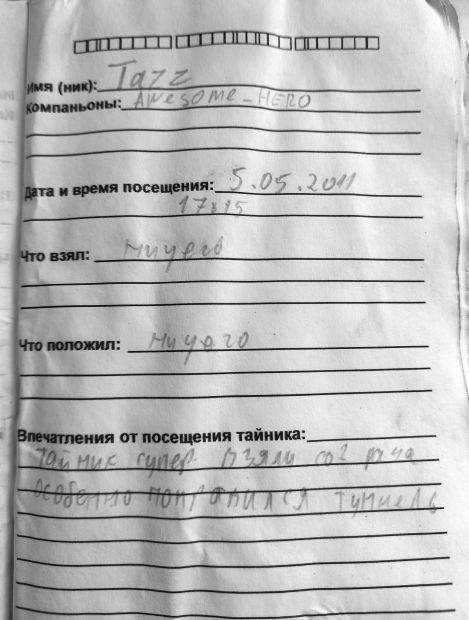 Имя (ник): Tazz
Компаньоны: Awesome_HERO
Дата и время посещения: 5.05.2011
17:15
Что взял: Ничего
Что положил: Ничего
Впечатления от посещения тайника:
Тайник супер взяли со 2 раза
особенно понравился туннель